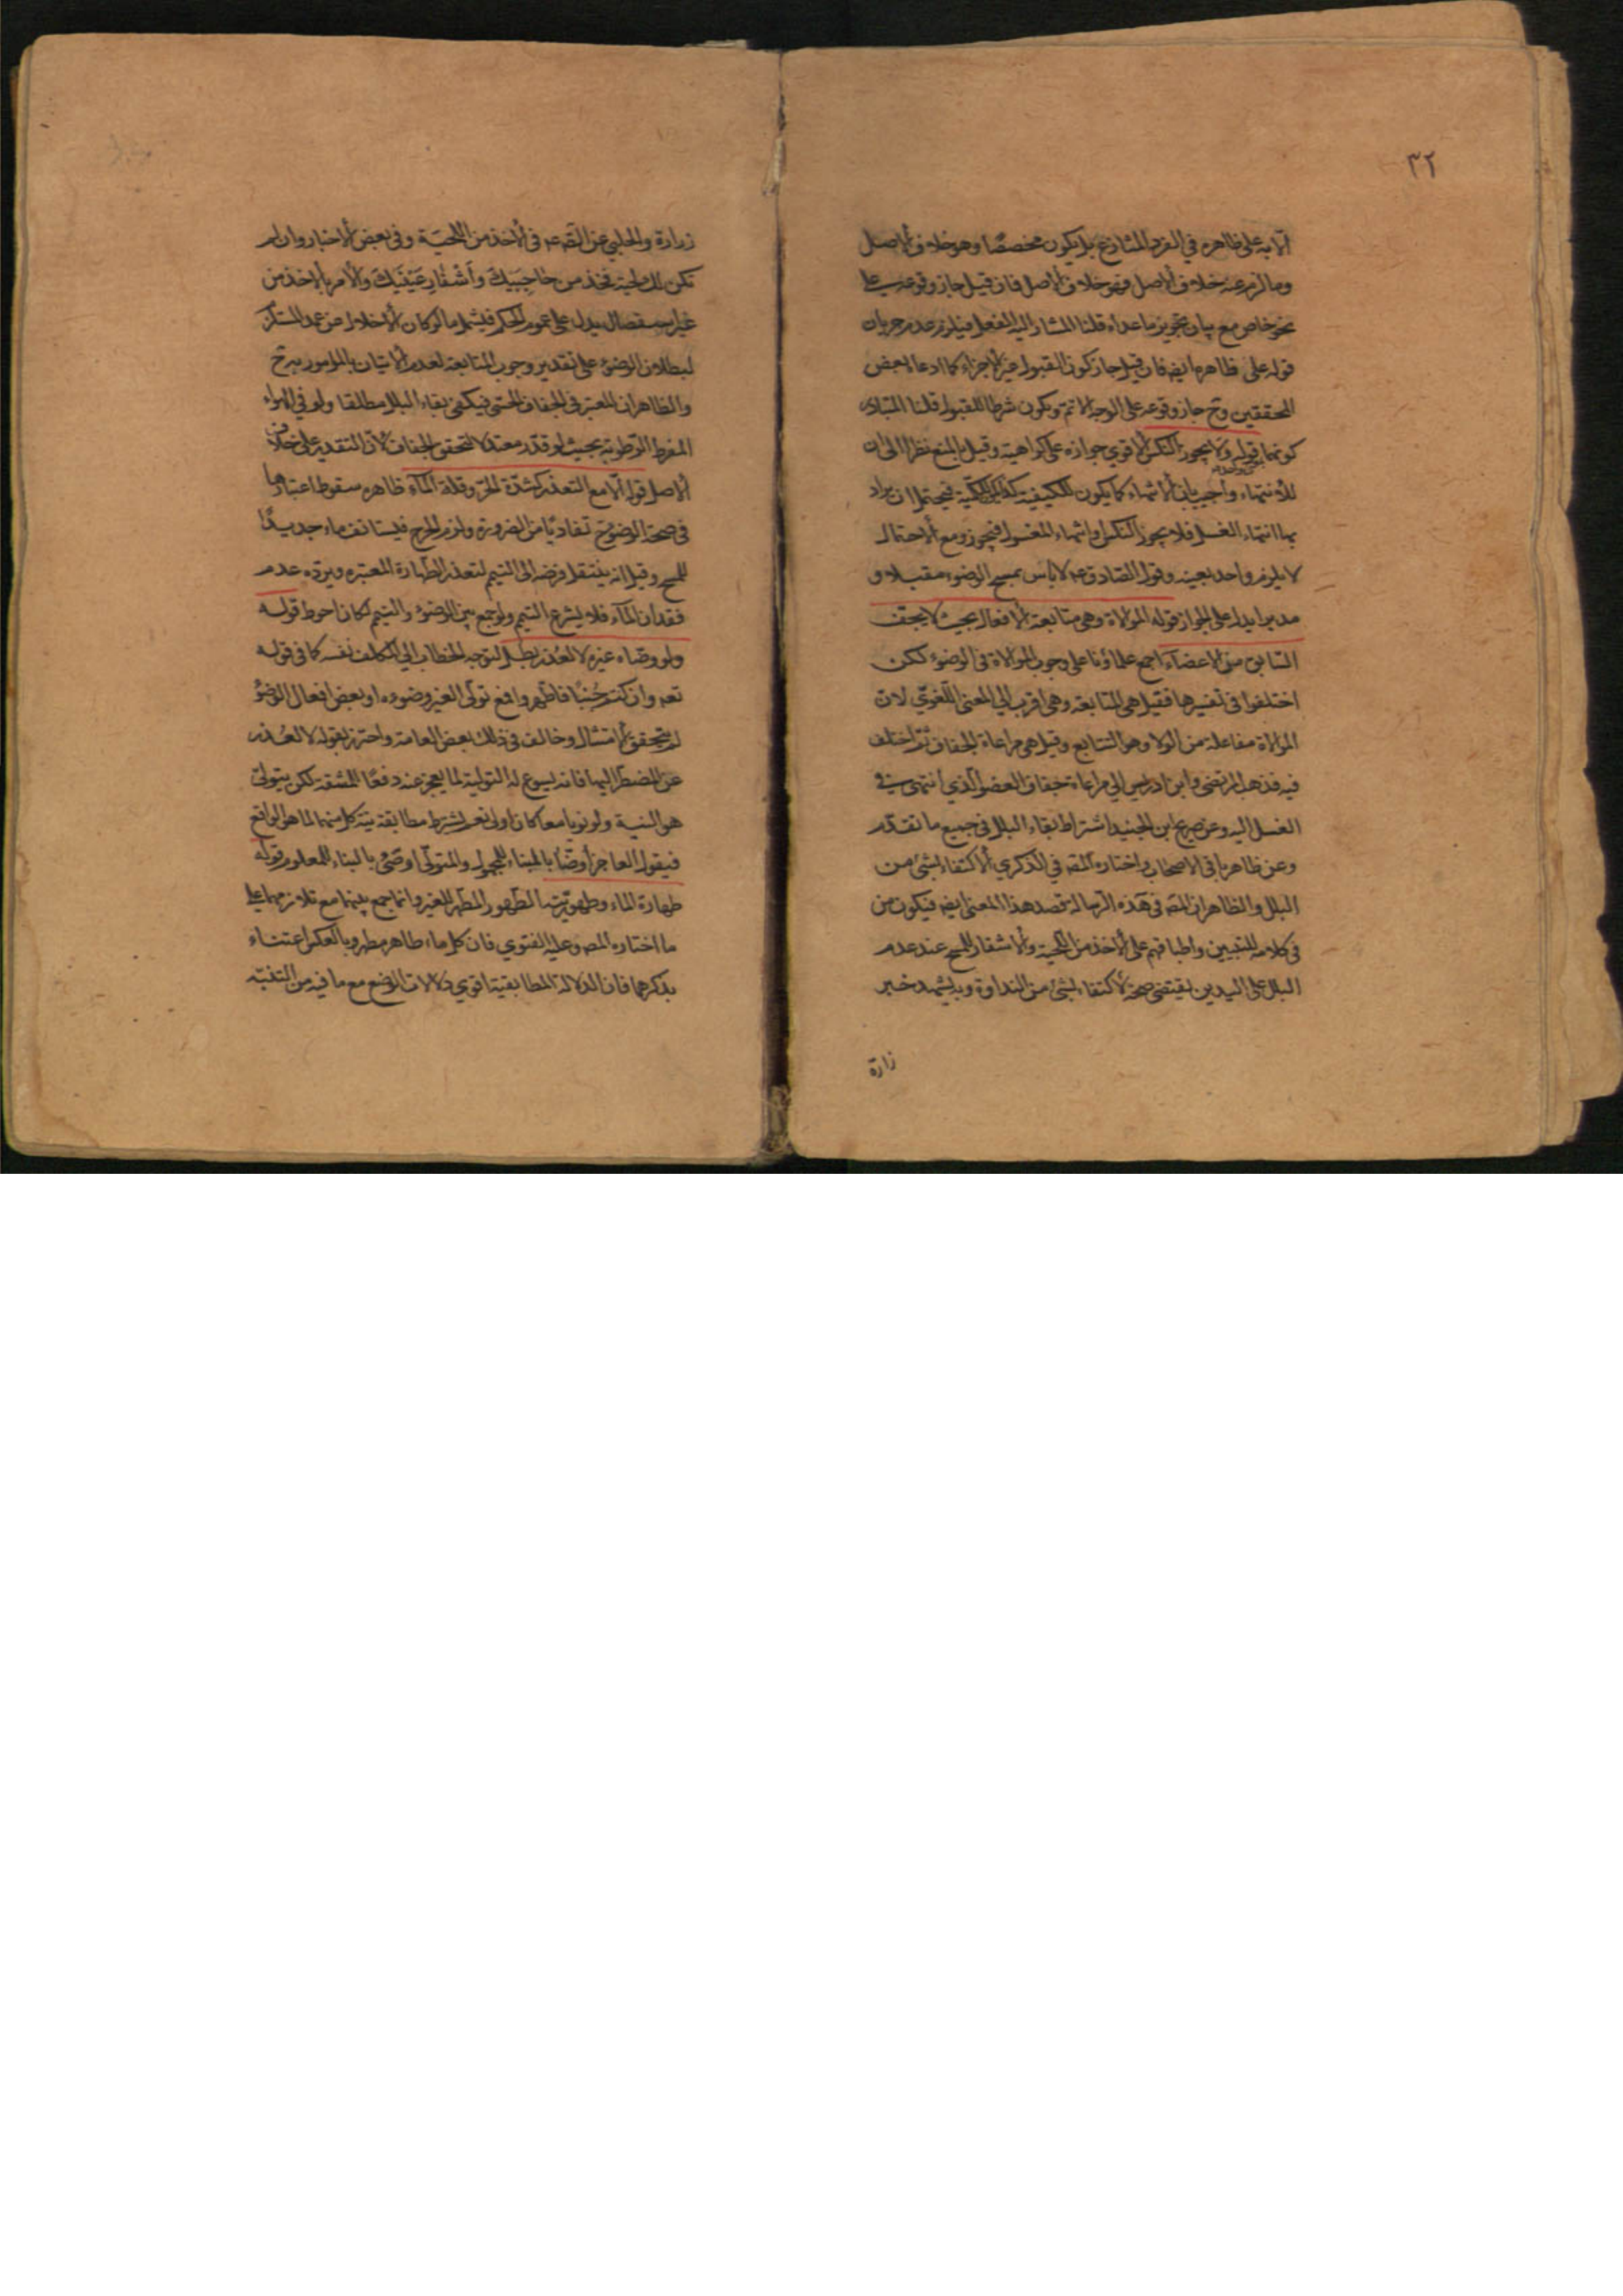 ٣٢
الا به على ظاهره في الفرد المشارع بل يكون مخصصا وهو خلاف الاصل
وما لزم عنه خلاف الاصل فهو خلاف الاصل فان قيل جاز وقوعه على
نحو خاص مع بيان تجويز ما عداه قلنا المشار اليه الفعل فيلزم عدم جريان
قوله على ظاهره ايضه فان قيل جاز كون القبول غير الاجزاء كما ادعاه بعض
المحققين وح جاز وقوعه على الوجه الاتم ويكون شرطا للقبول قلنا المتبادر
كونهما قوله ولا يجوز النكس الاقوي جوازه على كراهية وقيل بالمنع نظرا الى ان
للانتهاء واجيب بان الانتهاء كما يكون للكيفية كذلك للكمية فيحتمل ان يراد
بها انتهاء الغسل فلا يجوز النكس وانتهاء المغسول فيجوز ومع الاحتمال
لا يلزم واحد بعينه وقول الصادق عه لا باس بمسح الوضوء مقبلا و
مدبرا يدل على الجواز قوله الموالاة وهي متابعة الافعال بحيث لا يجف
السابق من الاعضاء اجمع علماؤنا على وجوب الموالاة في الوضوء لكن
اختلفوا في تفسيرها فقيل هي المتابعة وهي اقرب الي المعنى اللغوي لان
الموالاة مفاعلة من الولاء وهو التتابع وقيل هي مراعاة الجفاف ثم اختلف
فيه فذهب المرتضى وابن ادريس الي مراعاة جفاف العضو الذي انتهى في
الغسل اليه وعن صريح ابن الجنيد اشتراط بقاء البلل في جميع ما تقدم
وعن ظاهر باقي الاصحاب واختاره المصه في الذكري الاكتفاء بشئ من
البلل والظاهر ان المصه في هذه الرسالة قصد هذا المعنى ايضه فيكون من
في كلامه للتبيين واطباقهم على الاخذ من اللحية والاشفار للمسح عند عدم
البلل على اليدين يقتضي صحة الاكتفاء بشئ من النداوة ويشهد خبر
زرارة
زرارة والحلبي عن الصه عه في الاخذ من اللحية وفي بعض الاخبار وان لم
تكن لك لحية فخذ من حاجبيك واشفار عينيك والامر بالاخذ من
غير استفصال يدل على عموم الحكم فيشمل ما لو كان الاخلال عن عمد المستلزم
لبطلان الوضوء على تقدير وجوب المتابعة لعدم الاتيان بالمامور به ح
والظاهر ان المعتبر في الجفاف الحسي فيكفي بقاء البلل مطلقا ولو في الهواء
المفرط الرطوبة بحيث لو قدر معتدلا لتحقق الجفاف لان التقدير على خلاف
الاصل قوله الا مع التعذر كشدة الحر وقلة الماء ظاهره سقوط اعتبارها
في صحة الوضوء ح تفاديا من الضرورة ولزوم الحرج فيستانف ماء جديدا
للمسح وقيل انه ينتقل فرضه الى التيمم لتعذر الطهارة المعتبره ويرده عدم
فقدان الماء فلا يشرع التيمم ولو جمع بين الوضوء والتيمم لكان احوط قوله
ولو وضاه غيره لا لعذر بطل لتوجه الخطاب الي المكلف نفسه كما في قوله
تعه وان كنتم جنبا فاطهروا فمع تولي الغير وضوءه او بعض افعال الوضوء
لم يتحقق الامتثال وخالف في ذلك بعض العامة واحترز بقوله لا لعذر
عن المضطر اليها فانه يسوغ له التولية لما يعجز عنه دفعا للمشقة لكن يتولى
هو النية ولو نويا معا كان اولى نعم يشترط مطابقة نية كل منهما لما هو الواقع
فيقول العاجز اوضا بالبناء للمجهول والمتولي اوضئ بالبناء للمعلوم قوله
طهارة الماء وطهوريته الطهور المطهر للغير وانما جمع بينهما مع تلازمهما على
ما اختاره المصه وعليه الفتوي فان كل ماء طاهر مطهر وبالعكس اعتناء
بذكرهما فان الدلالة المطابقية اقوي دلالات الوضع مع ما فيه من التنبيه